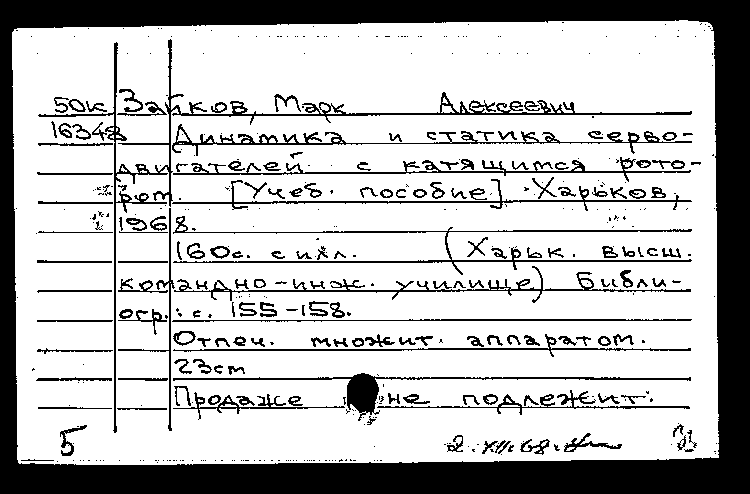 50к Зайков, Марк Алексеевич
16348 Динамика и статика серво-
двигателей с катящимся рото-
ром. [Учеб. пособие] Харьков,
1968.
160с. с илл. (Харьк. высш.
командно-инж. училище) Библи-
огр.: с. 155-158.
Отпеч. множит. аппаратом.
23см
Продаже не подлежит.
5 2.XII.68.